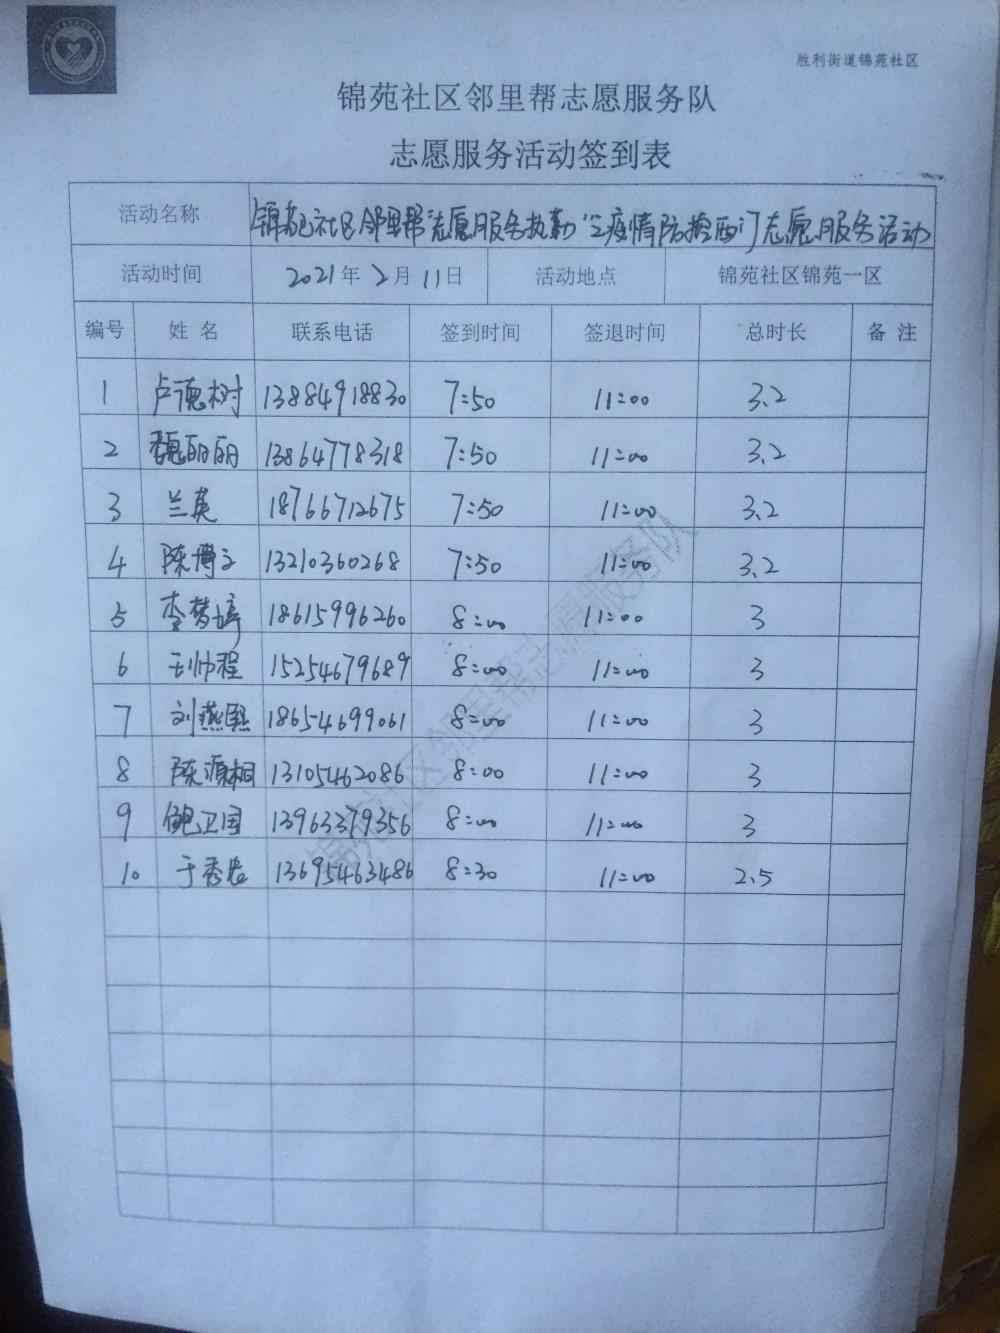 胜利街道锦苑社区
锦苑社区邻里帮志愿服务队
志愿服务活动签到表
活动名称 锦苑社区邻里帮志愿服务执勤 疫情防控西门志愿服务活动
活动时间 2021年2月11日 活动地点 锦苑社区锦苑一区
编号 姓名 联系电话 签到时间 签退时间 总时长 备注
1 卢德树 13884918830 7:50 11:00 3.2
2 魏丽丽 13864778318 7:50 11:00 3.2
3 兰英 18766712675 7:50 11:00 3.2
4 陈博文 13210360268 7:50 11:00 3.2
5 李梦婷 18615996260 8:00 11:00 3
6 王帅程 15254679689 8:00 11:00 3
7 刘燕熙 18654699061 8:00 11:00 3
8 陈源桐 13105462086 8:00 11:00 3
9 鲍卫国 13963379356 8:00 11:00 3
10 于秀 13695463486 8:30 11:00 2.5
锦苑社区邻里帮志愿服务队